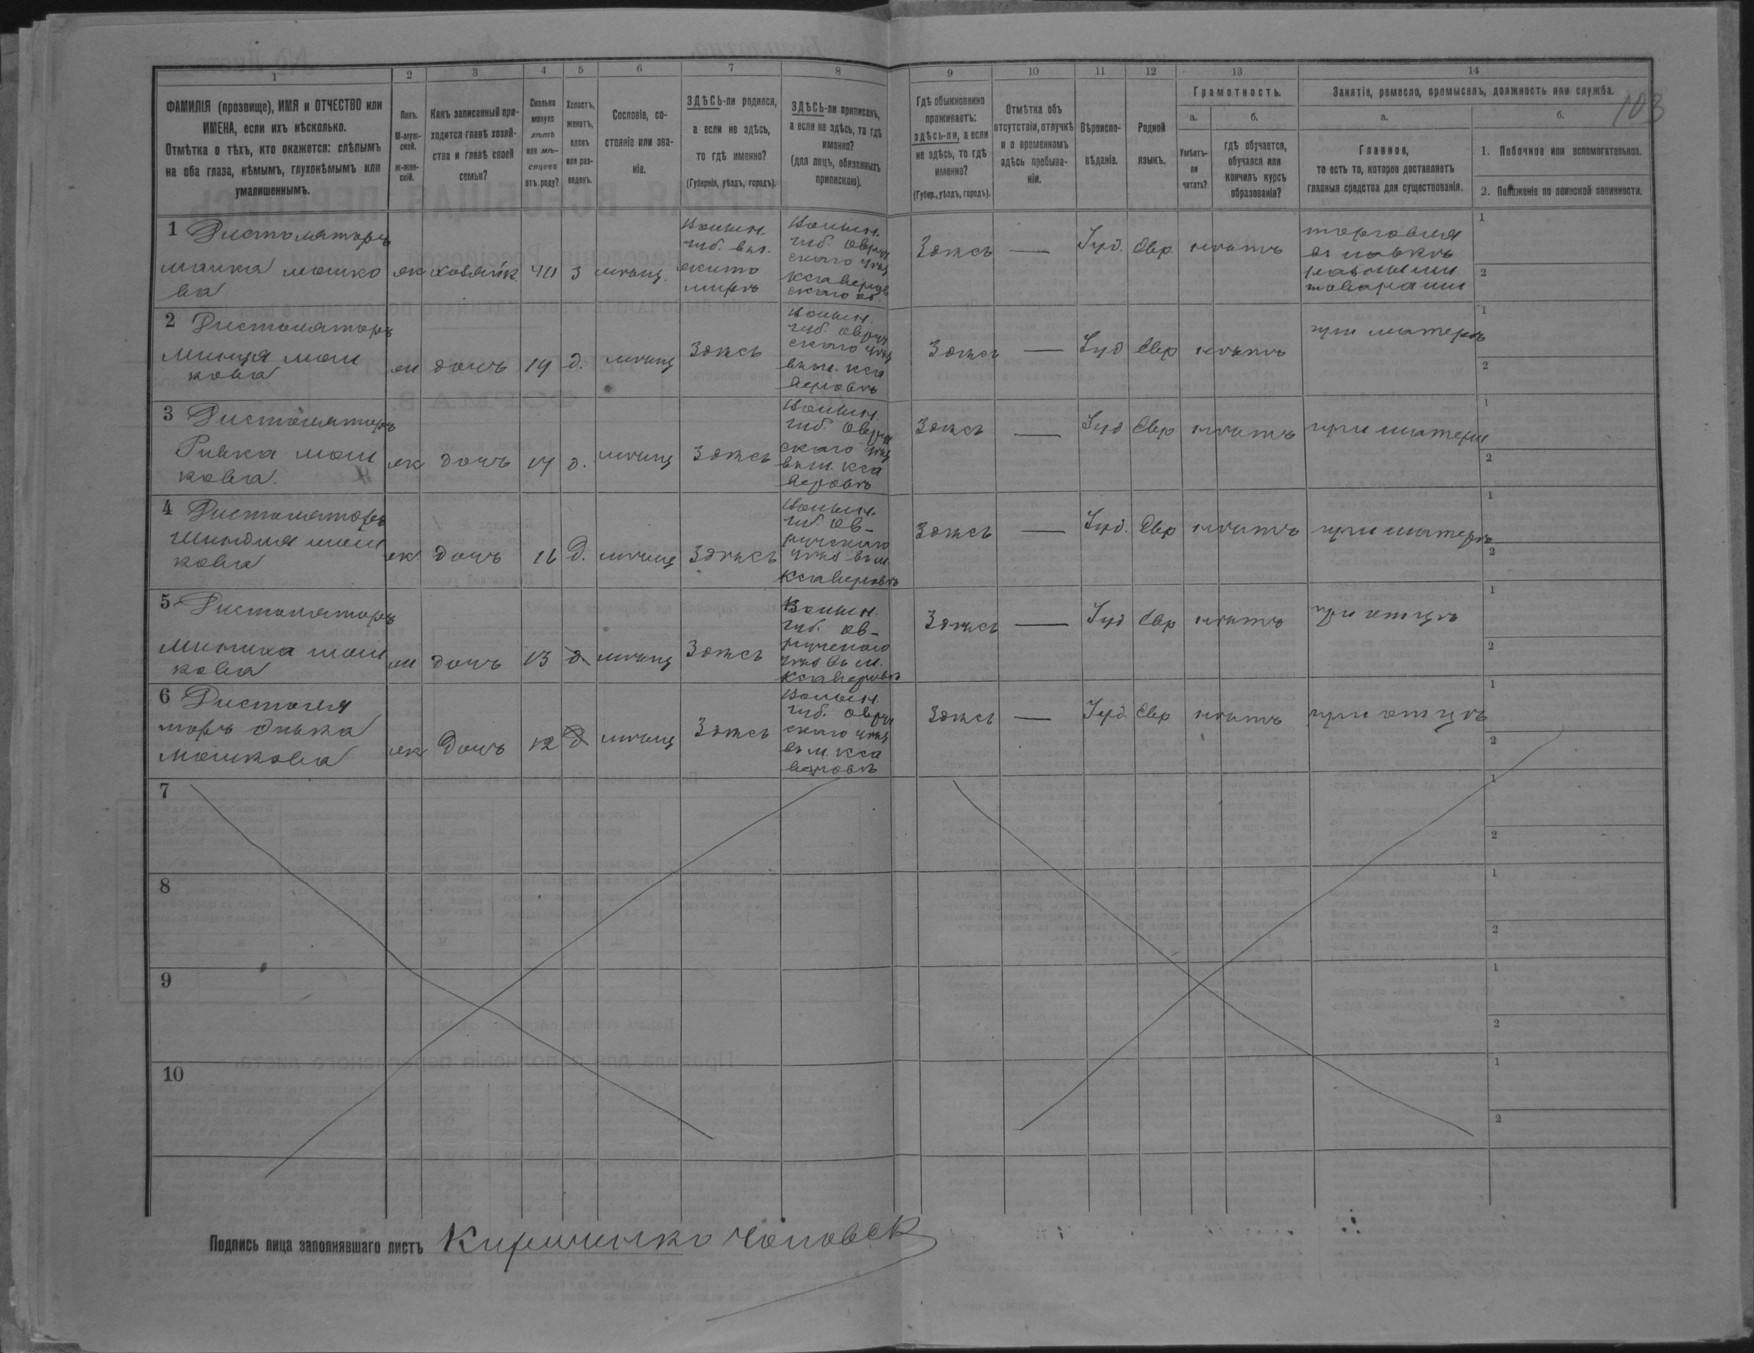 103
1 2 3 4 5 6 7 8 9 10 11 12 13 14
ФАМИЛІЯ (прозвище), ИМЯ и ОТЧЕСТВО или
ИМЕНА, если ихъ нѣсколько.
Отмѣтка о тѣхъ, кто окажется: слѣпымъ
на оба глаза, нѣмымъ, глухонѣмымъ или
умалишеннымъ.
Полъ.
М-муж-
ской.
ж-жен-
скій.
Какъ записанный при-
ходится главѣ хозяй-
ства и главѣ своей
семьи?
Сколько
минуло
лѣтъ
или мѣ-
сяцевъ
отъ роду?
Холостъ,
женатъ,
вдовъ
или раз-
веденъ.
Сословіе, со-
стояніе или зва-
ніе.
ЗДѢСЬ-ли родился,
а если не здѣсь,
то гдѣ именно?
(Губернія, уѣздъ, городъ).
ЗДѢСЬ-ли приписанъ,
а если не здѣсь, то гдѣ
именно?
(для лицъ, обязанныхъ
припискою).
Гдѣ обыкновенно
проживаетъ:
здѣсь-ли, а если
не здѣсь, то гдѣ
именно?
(Губер., уѣздъ, городъ).
Отмѣтка объ
отсутствіи, отлучкѣ
и о временномъ
здѣсь пребыва-
ніи.
Вѣроиспо-
вѣданіе.
Родной
языкъ.
Грамотность.
а. б.
Умѣетъ-
ли
читать?
гдѣ обучается,
обучался или
кончилъ курсъ
образованія?
Занятіе, ремесло, промыселъ, должность или служба.
а. б.
Главное,
то есть то, которое доставляетъ
главныя средства для существованія.
1. Побочное или вспомогательное.
2. Положеніе по воинской повинности.
1 Дистиляторъ
Малка Мошко
ва
ж хозяйк. 40 з мѣщ.
Волын.
губ. въ г.
Жито
миръ
Волын.
губ. Овруч
скаго уѣз
Здѣсь — Іуд. Евр нѣтъ
торговля
въ лавкѣ
товарами
1
2
2 Дистиляторъ
Минця Мош
кова
ж дочь 19 д. мѣщ Здѣсь
Волын.
губ. Овруч
скаго уѣз
въ м. Кса
веровъ
Здѣсь — Іуд Евр нѣтъ при матерѣ
1
2
3 Дистиляторъ
Ривка Мош
кова.
ж дочь 17 д. мѣщ Здѣсь
Волын.
губ Овруч
скаго уѣз
въ м. Кса
веровъ
Здѣсь — Іуд Евр нѣтъ при матери
1
2
4 Дистиляторъ
Шиндля Мош
кова
ж дочь 16 д. мѣщ Здѣсь
Волын.
губ Ов-
ручскаго
уѣз въ м.
Ксаверовъ
Здѣсь — Іуд. Евр нѣтъ при матерѣ
1
2
5 Дистиляторъ
Миниха Мош
кова
ж дочь 13 д мѣщ Здѣсь
Волын.
губ. Ов-
ручскаго
уѣз въ м.
Ксаверовъ
Здѣсь — Іуд Евр нѣтъ при отцѣ
1
2
6 Дистиля
торъ
Мошкова
ж дочь 12 д мѣщ Здѣсь
Волын.
губ. Овруч
скаго уѣз
въ м. Кса
веровъ
Здѣсь — Іуд. Евр нѣтъ при отцѣ
1
2
7
1
2
8
1
2
9
1
2
10
1
2
Подпись лица заполнявшаго листъ